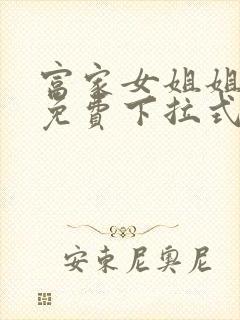 富家女姐姐
免費下拉式
安東尼奧尼